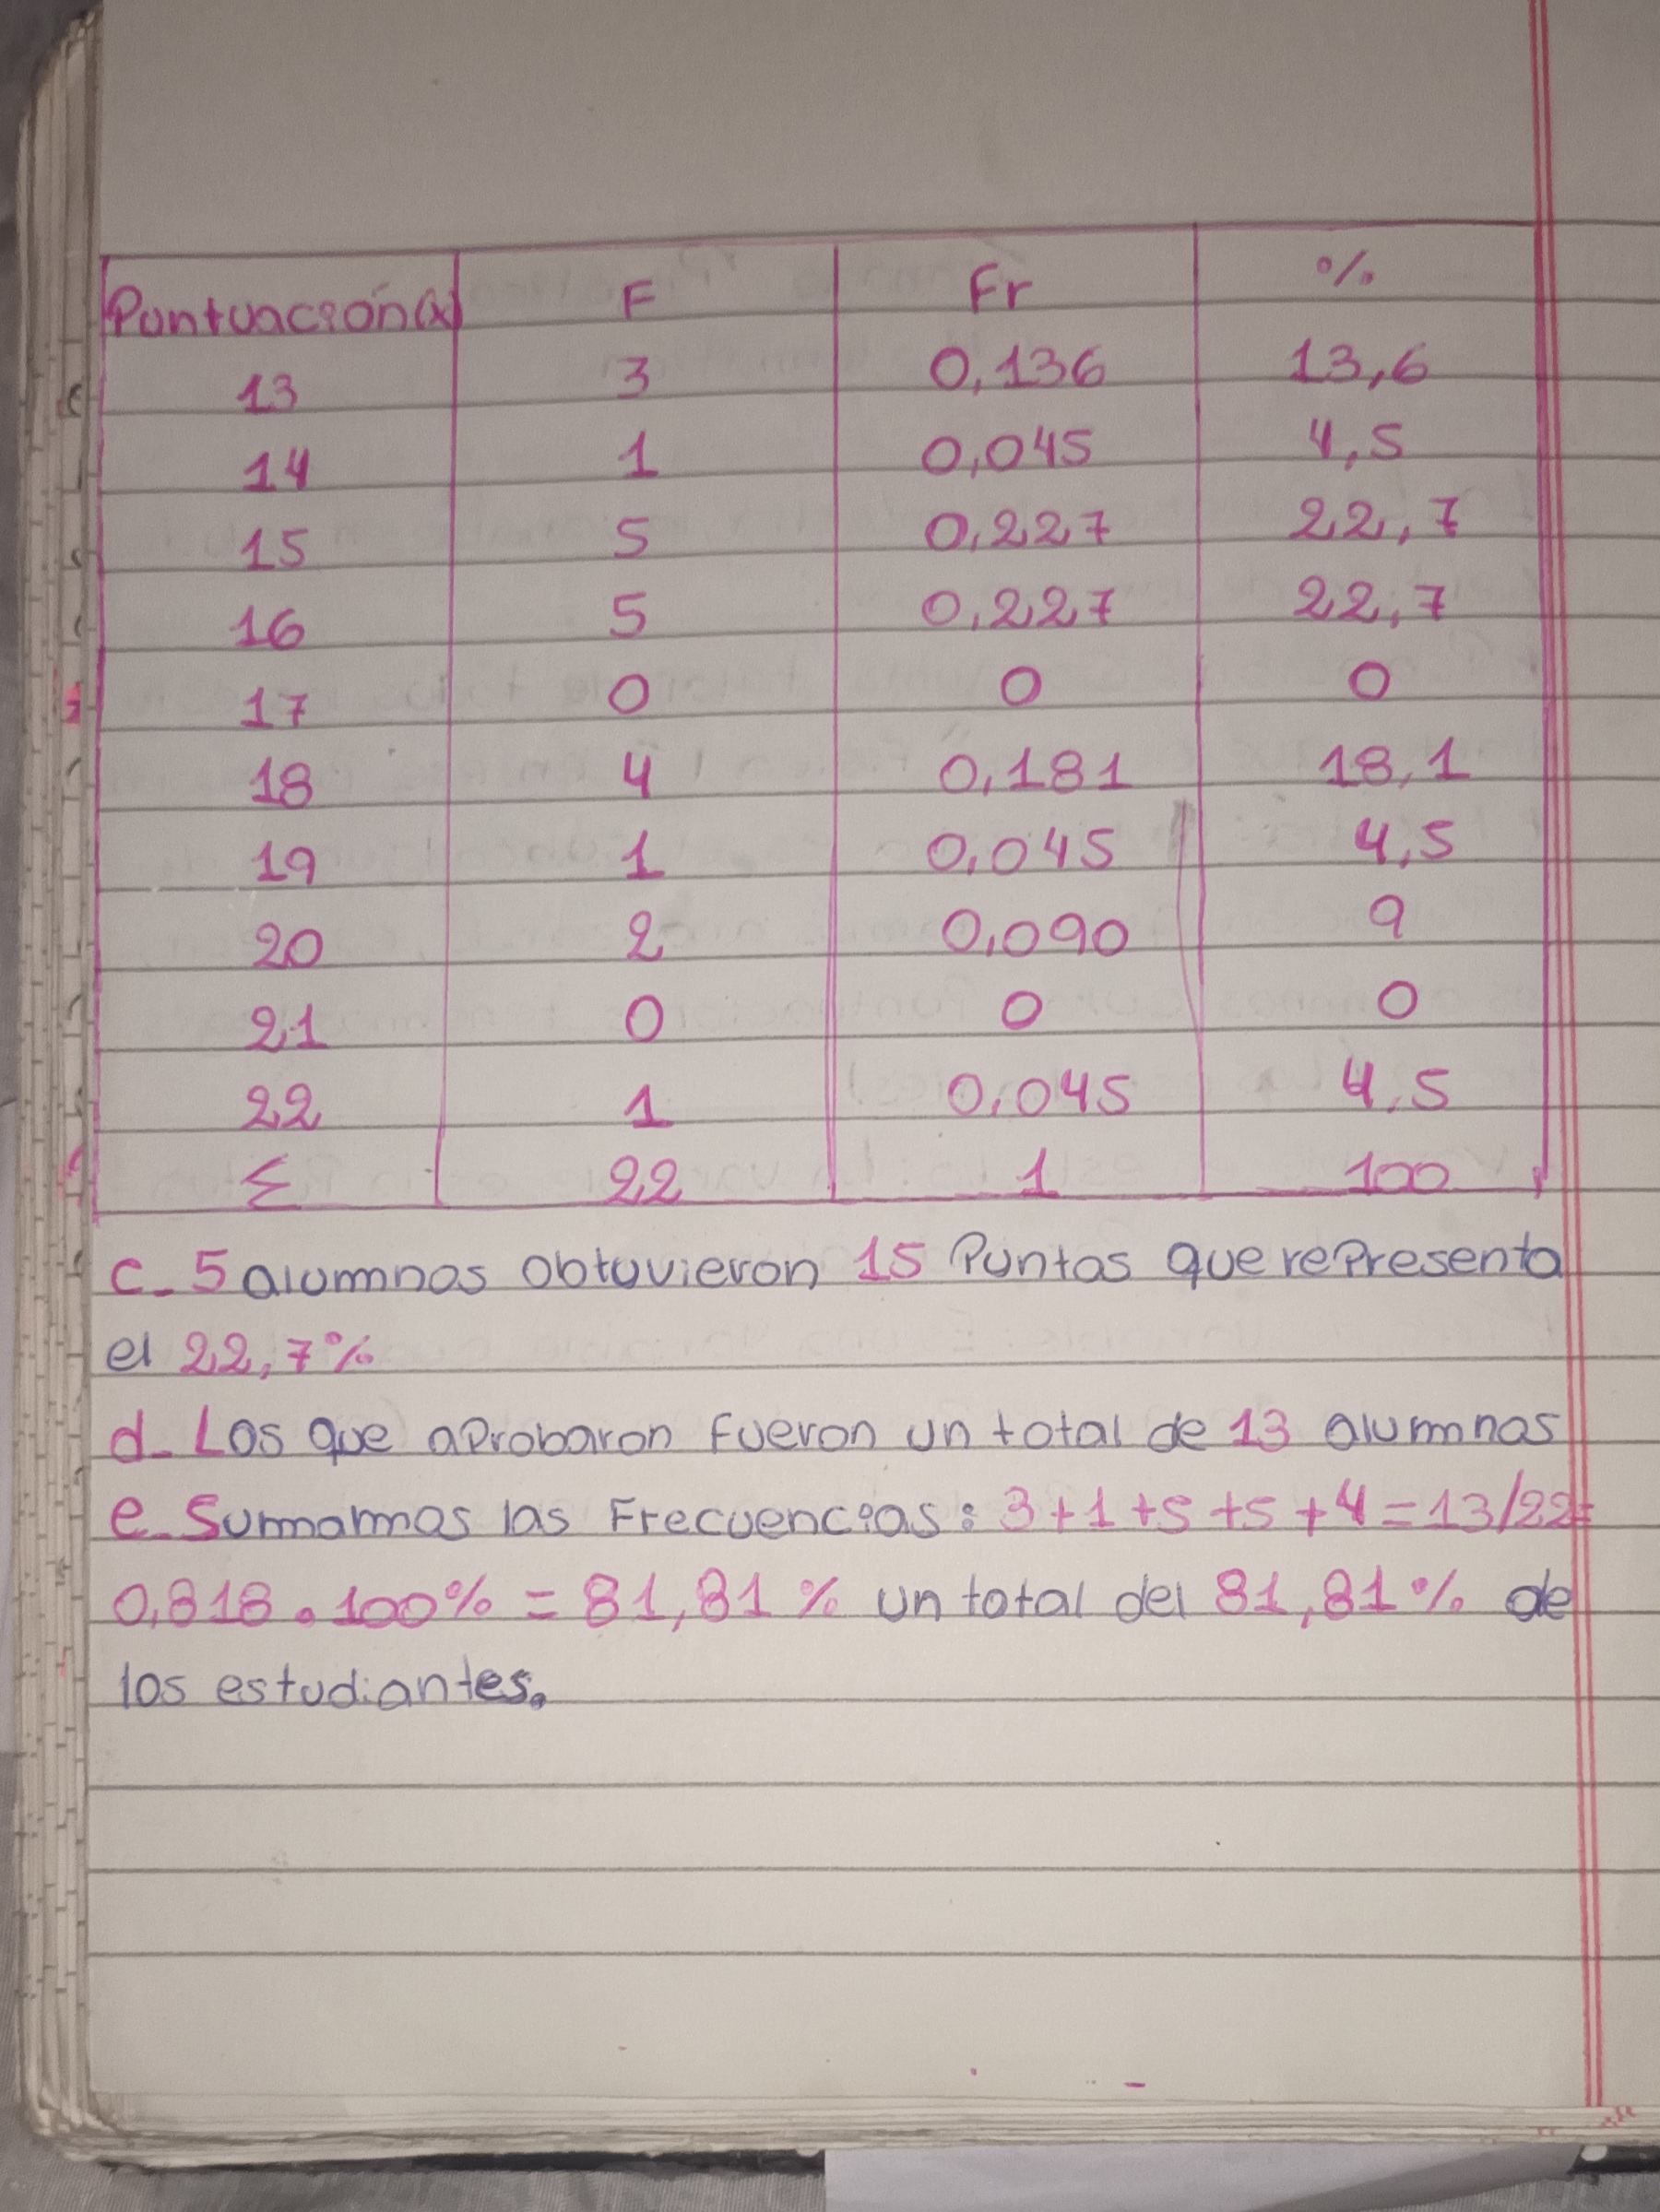 Puntuación(x) F Fr %
13 3 0,136 13,6
14 1 0,045 4,5
15 5 0,227 22,7
16 5 0,227 22,7
17 0 0 0
18 4 0,181 18,1
19 1 0,045 4,5
20 2 0,090 9
21 0 0 0
22 1 0,045 4,5
Σ 22 1 100
c_ 5 alumnos obtuvieron 15 Puntos que representa
el 22,7%
d_ Los que aprobaron fueron un total de 13 alumnos
e_ Sumamos las Frecuencias: 3+1+5+5+4=13/22=
0,818 . 100% = 81,81% un total del 81,81% de
los estudiantes.